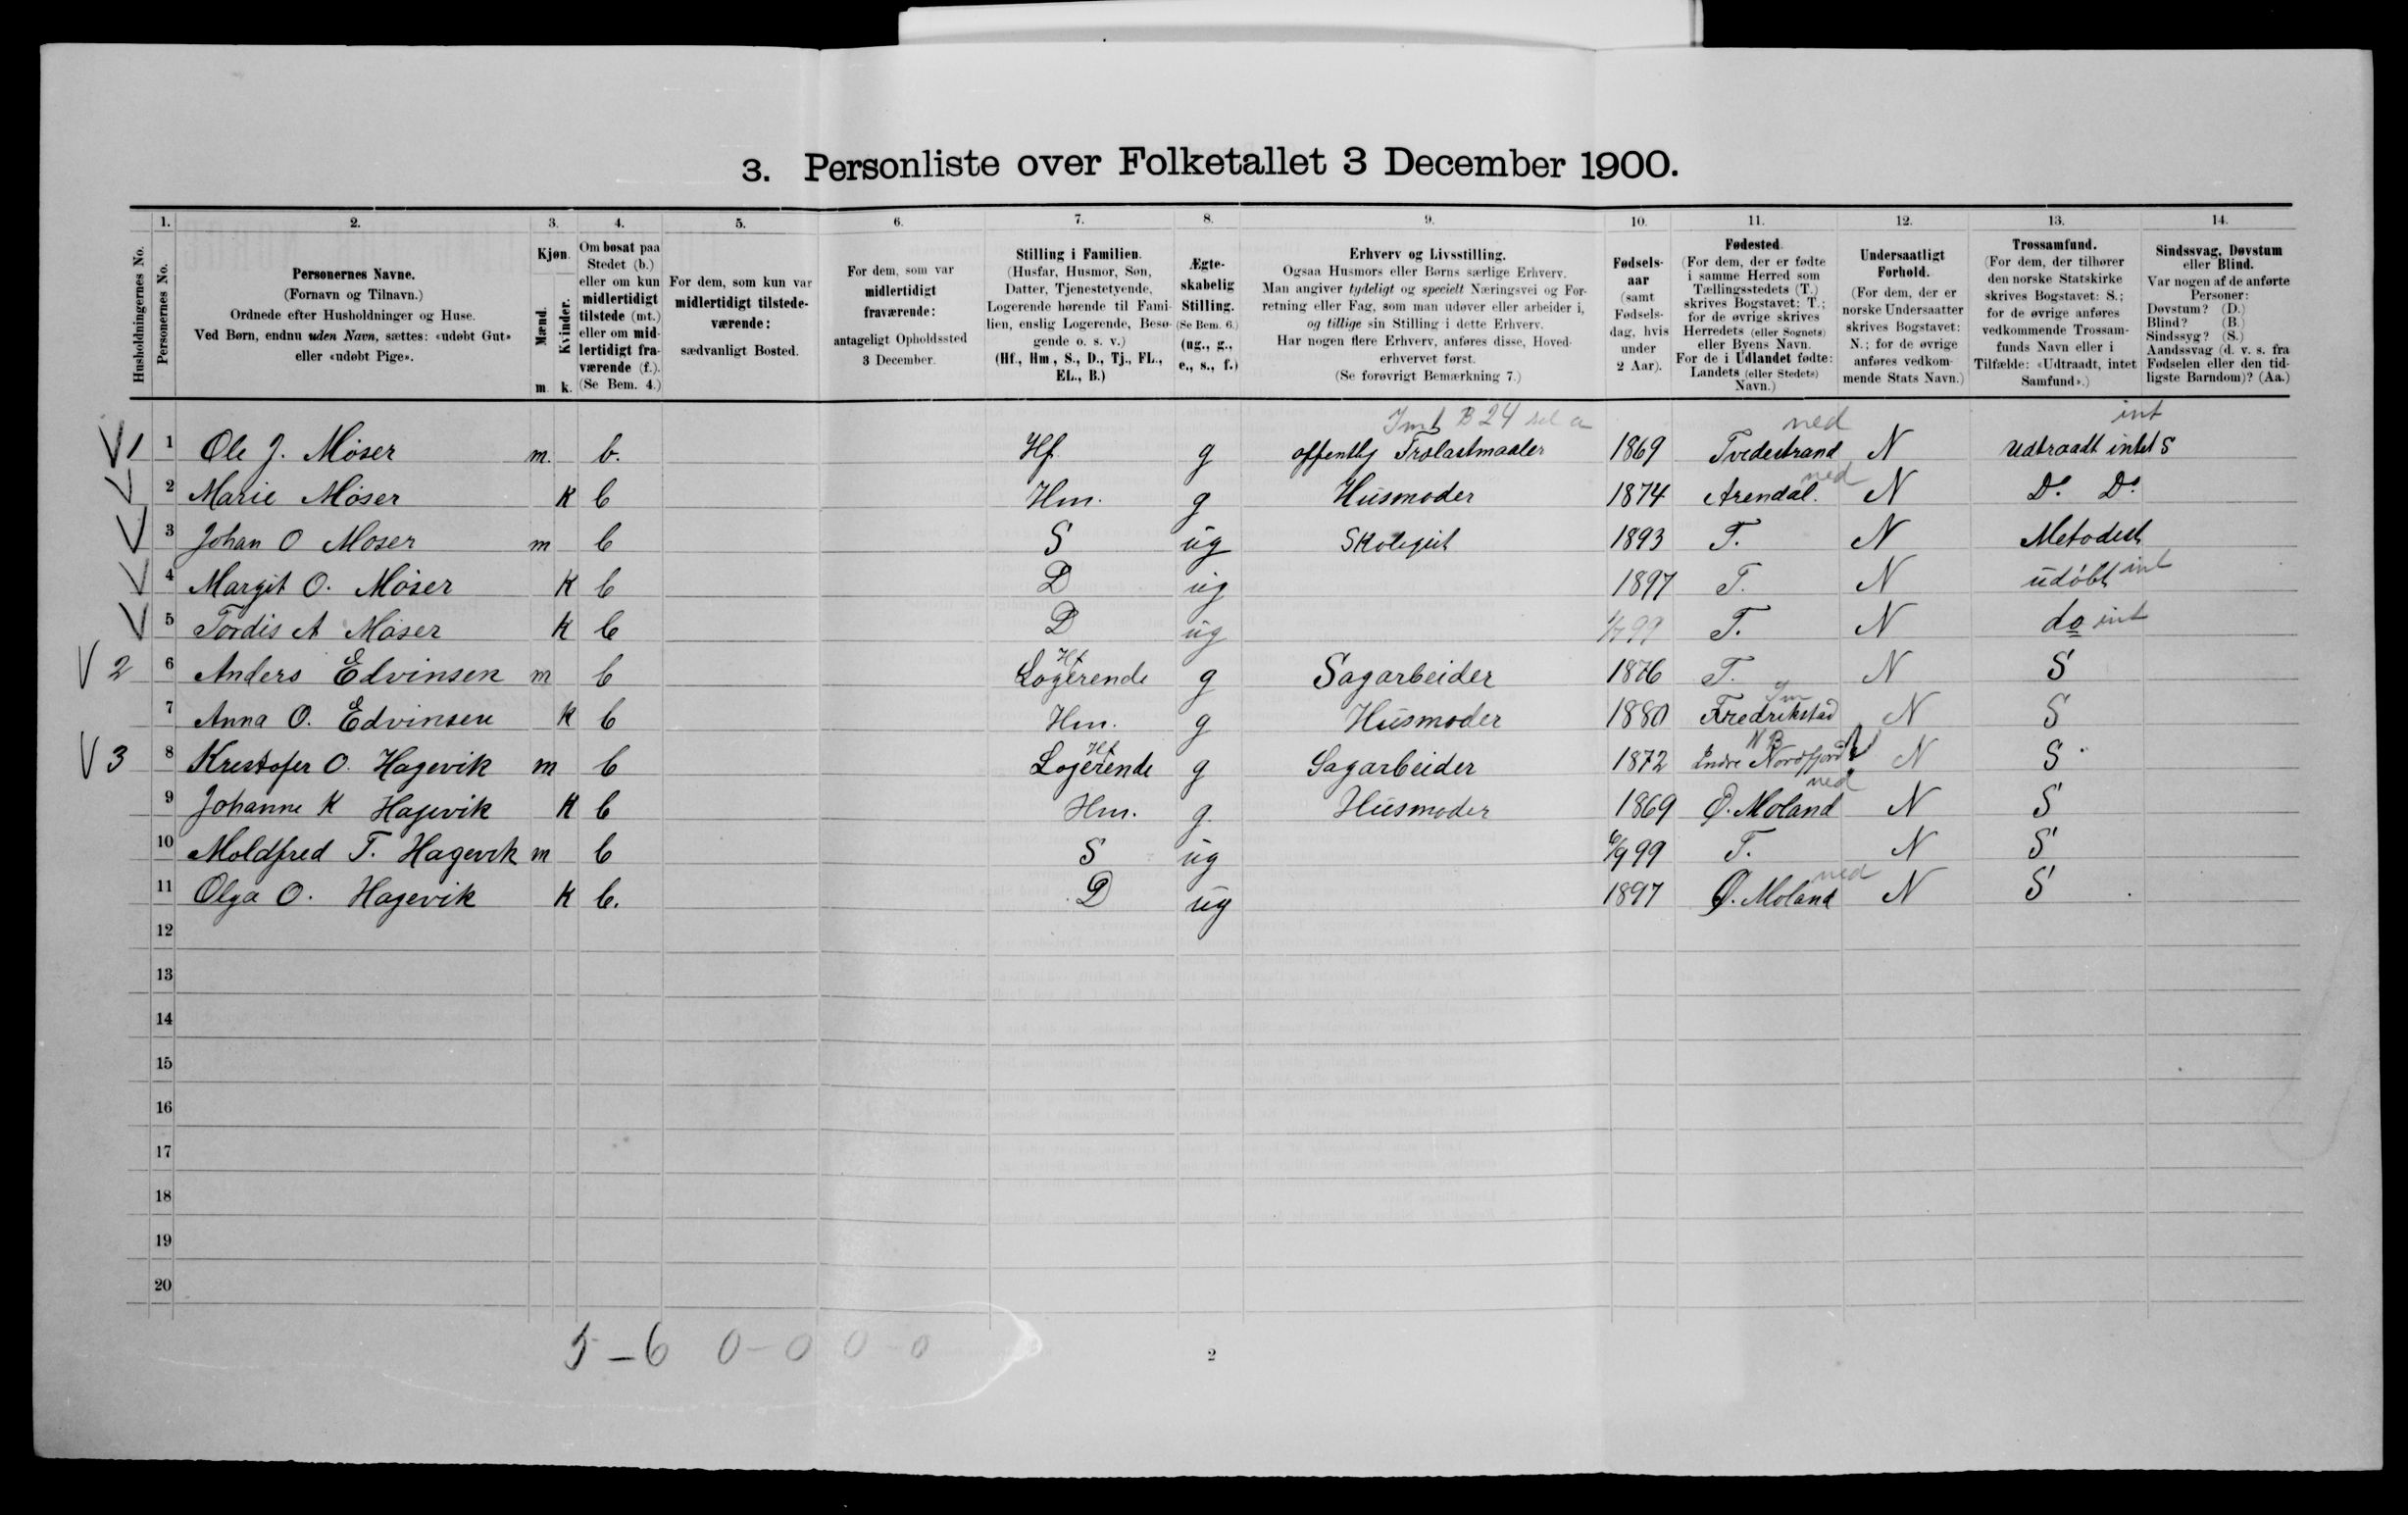 3. Personliste over Folketallet 3 December 1900.
1. 2. 3. 4. 5. 6. 7. 8. 9. 10. 11. 12. 13. 14.
Husholdningernes No.
Personernes No.
Personernes Navne.
(Fornavn og Tilnavn.)
Ordnede efter Husholdninger og Huse.
Ved Børn, endnu uden Navn, sættes: «udøbt Gut»
eller «udøbt Pige».
Kjøn.
Mænd.
Kvinder.
m. k.
Om bosat paa
Stedet (b.)
eller om kun
midlertidigt
tilstede (mt.)
eller om mid-
lertidigt fra-
værende (f.).
(Se Bem. 4.)
For dem, som kun var
midlertidigt tilstede-
værende:
sædvanligt Bosted.
For dem, som var
midlertidigt
fraværende:
antageligt Opholdssted
3 December.
Stilling i Familien.
(Husfar, Husmor, Søn,
Datter, Tjenestetyende,
Logerende hørende til Fami-
lien, enslig Logerende, Besø-
gende o. s. v.)
(Hf., Hm., S., D., Tj., FL.,
EL., B.)
Ægte-
skabelig
Stilling.
(Se Bem. 6.)
(ug., g.,
e., s., f.)
Erhverv og Livsstilling.
Ogsaa Husmors eller Børns særlige Erhverv.
Man angiver tydeligt og specielt Næringsvei og For-
retning eller Fag, som man udøver eller arbeider i,
og tillige sin Stilling i dette Erhverv.
Har nogen flere Erhverv, anføres disse, Hoved-
erhvervet først.
(Se forøvrigt Bemærkning 7.)
Fødsels-
aar
(samt
Fødsels-
dag, hvis
under
2 Aar).
Fødested.
(For dem, der er fødte
i samme Herred som
Tællingsstedets (T.)
skrives Bogstavet: T.;
for de øvrige skrives
Herredets (eller Sognets)
eller Byens Navn.
For de i Udlandet fødte:
Landets (eller Stedets)
Navn.)
Undersaatligt
Forhold.
(For dem, der er
norske Undersaatter
skrives Bogstavet:
N.; for de øvrige
anføres vedkom-
mende Stats Navn.)
Trossamfund.
(For dem, der tilhører
den norske Statskirke
skrives Bogstavet: S.;
for de øvrige anføres
vedkommende Trossam-
funds Navn eller i
Tilfælde: «Udtraadt, intet
Samfund».)
Sindssvag, Døvstum
eller Blind.
Var nogen af de anførte
Personer:
Døvstum? (D.)
Blind? (B.)
Sindssyg? (S.)
Aandssvag (d. v. s. fra
Fødselen eller den tid-
ligste Barndom)? (Aa.)
B 24 ned int
V 1 1 Ole J. Möser m. b. Hf g offentlg Trælastmaaler 1869 Tvedestrand N Udtraadt intet S
ned
V 2 Marie Möser K b Hm. g Husmoder 1874 Arendal. N Do. Do.
V 3 Johan O Moser m b S ug Skolegut 1893 T. N Metodist
V 4 Margit O. Möser K b D ug 1897 T. N udöbt int
V 5 Tordis A Möser K b D ug 99 T. N do int
Hf
V 2 6 Anders Edvinsen m b Logerende g Sagarbeider 1876 T. N S
7 Anna O. Edvinsen K b Hm. g Husmoder 1880 Fredrikstad N S
Hf NB
V 3 8 Krestofer O. Hagevik m b Logerende g Sagarbeider 1872 Indre Nordfjord N S
ned
9 Johanne K Hagevik K b Hm. g. Husmoder 1869 Ø. Moland N S
10 Moldfred T. Hagevik m b S ug 6/9 99 T. N S
ned
11 Olga O. Hagevik K b. D ug 1897 Ø. Moland N S
12
13
14
15
16
17
18
19
20
5 – 6 0 – 0 0 – 0
2